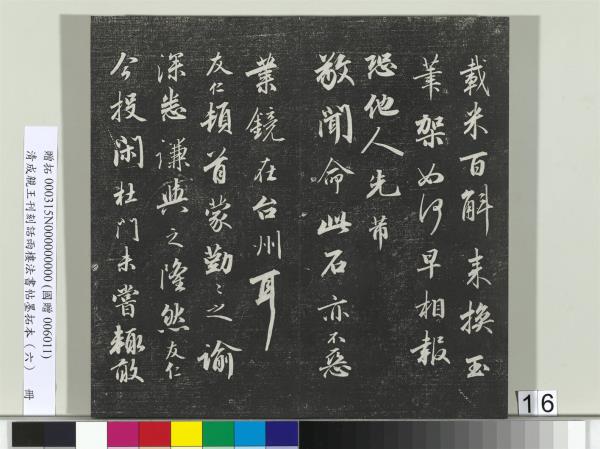 載米百斛來換玉
筆架如何早相報
恐他人先帶
敬聞命此石亦不惡
業鏡在台州耳
友仁頓首蒙勤〻之諭
深悉謙與之隆然友仁
今投閑杜門未嘗輒敢
贈拓000315N000000000(國贈006011)
清成親王刊刻詒晉樓法書帖墨拓本(六) 冊
16